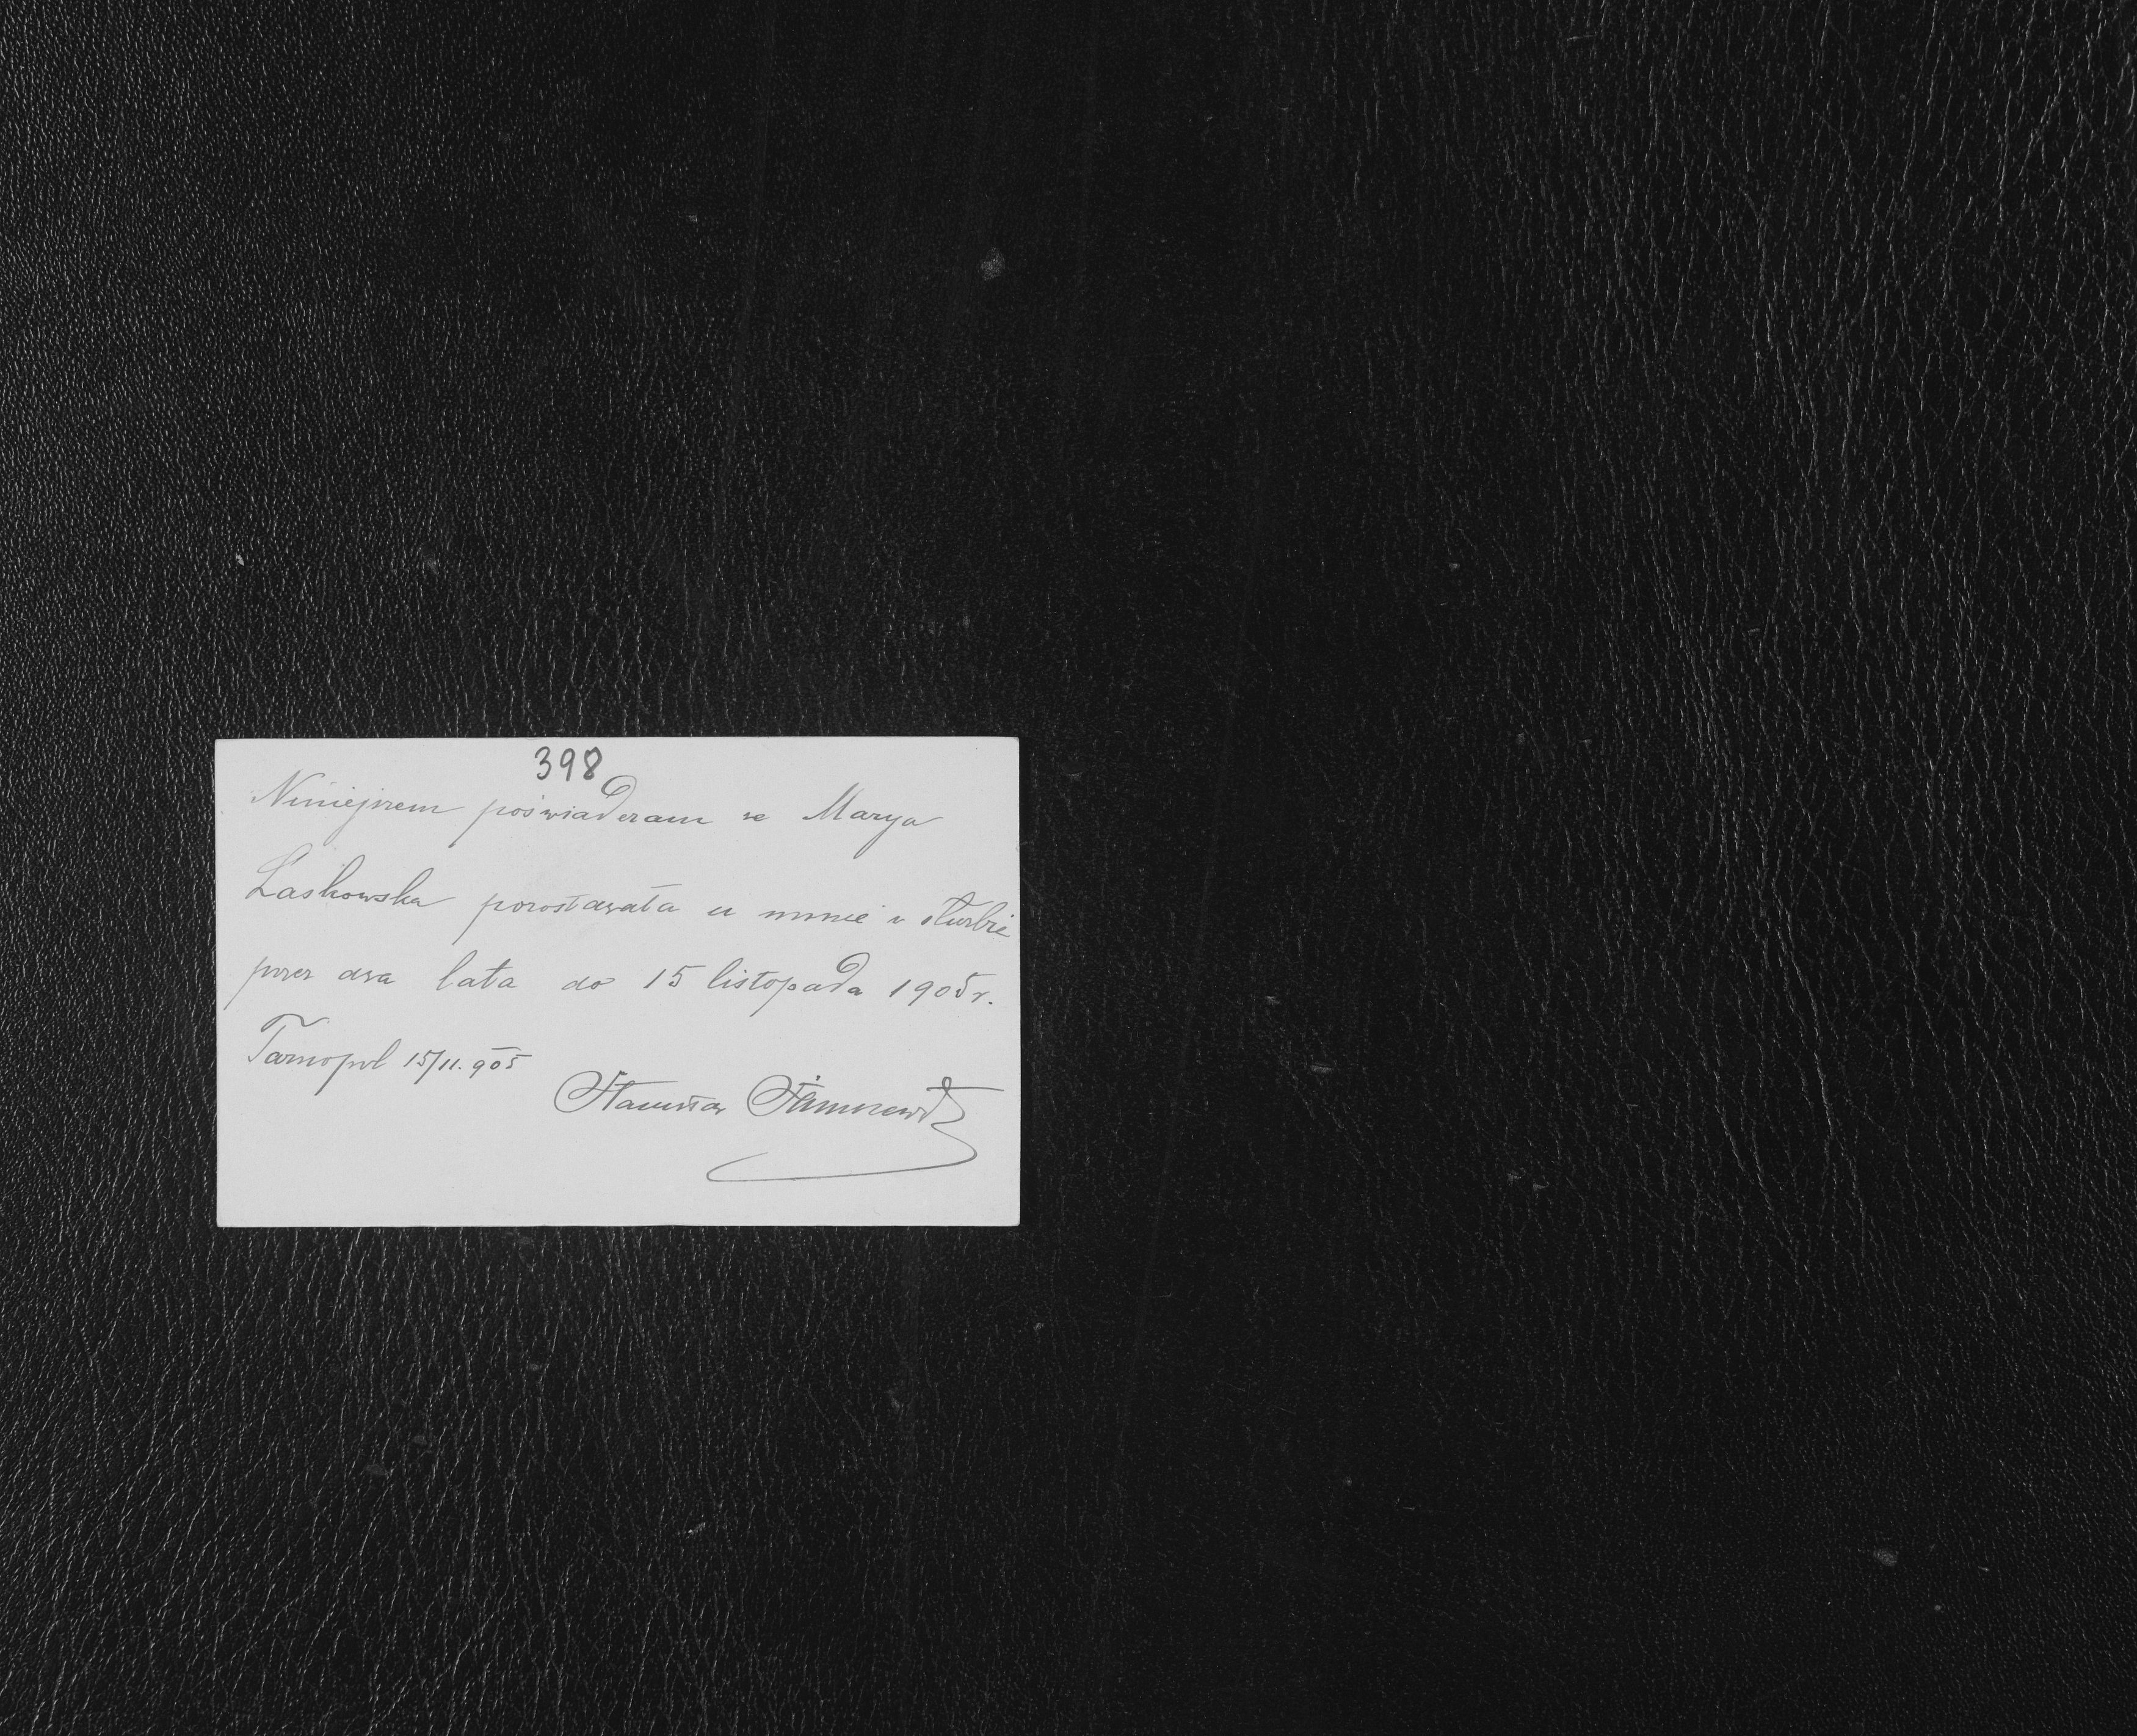 398
Niniejszem poświadczam że Marya
Laskowska pozostawała u mnie w służbie
przez dwa lata do 15 listopada 1905 r.
Tarnopol 15/11. 905
Stanisław